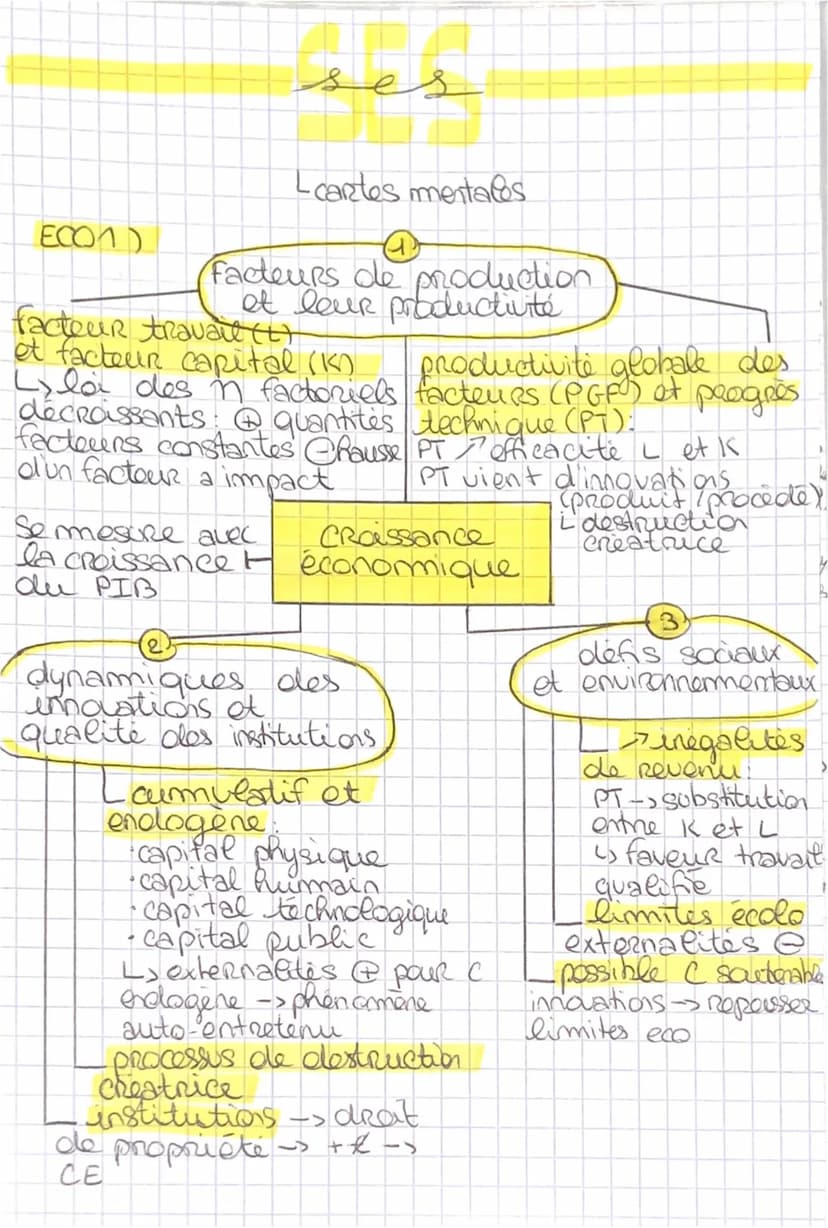 SES
ses
cartes mentales
ECO1)
1
facteurs de production
et leur productivité
facteur travail (L)
et facteur capital (K)
↳ loi des n factoriels
décroissants : ⊕ quantités
facteurs constantes ⊖ hausse
d'un facteur a impact
productivité globale des
facteurs (PGF) et progrès
technique (PT):
PT ↗ efficacité L et K
PT vient d'innovations
(produit / procédé)
↳ destruction
créatrice
Se mesure avec
la croissance
du PIB
croissance
économique
2
dynamiques des
innovations et
qualité des institutions
cumulatif et
endogène:
• capital physique
• capital humain
• capital technologique
• capital public
↳ externalités ⊕ pour C
endogène -> phénomène
auto-entretenu
processus de destruction
créatrice
institutions -> droit
de propriété -> ->
CE
3
défis sociaux
et environnementaux
↗ inégalités
de revenu:
PT -> substitution
entre K et L
↳ faveur travail
qualifié
limites écolo
externalités ⊖
possible C soutenable
innovations -> repousser
limites eco